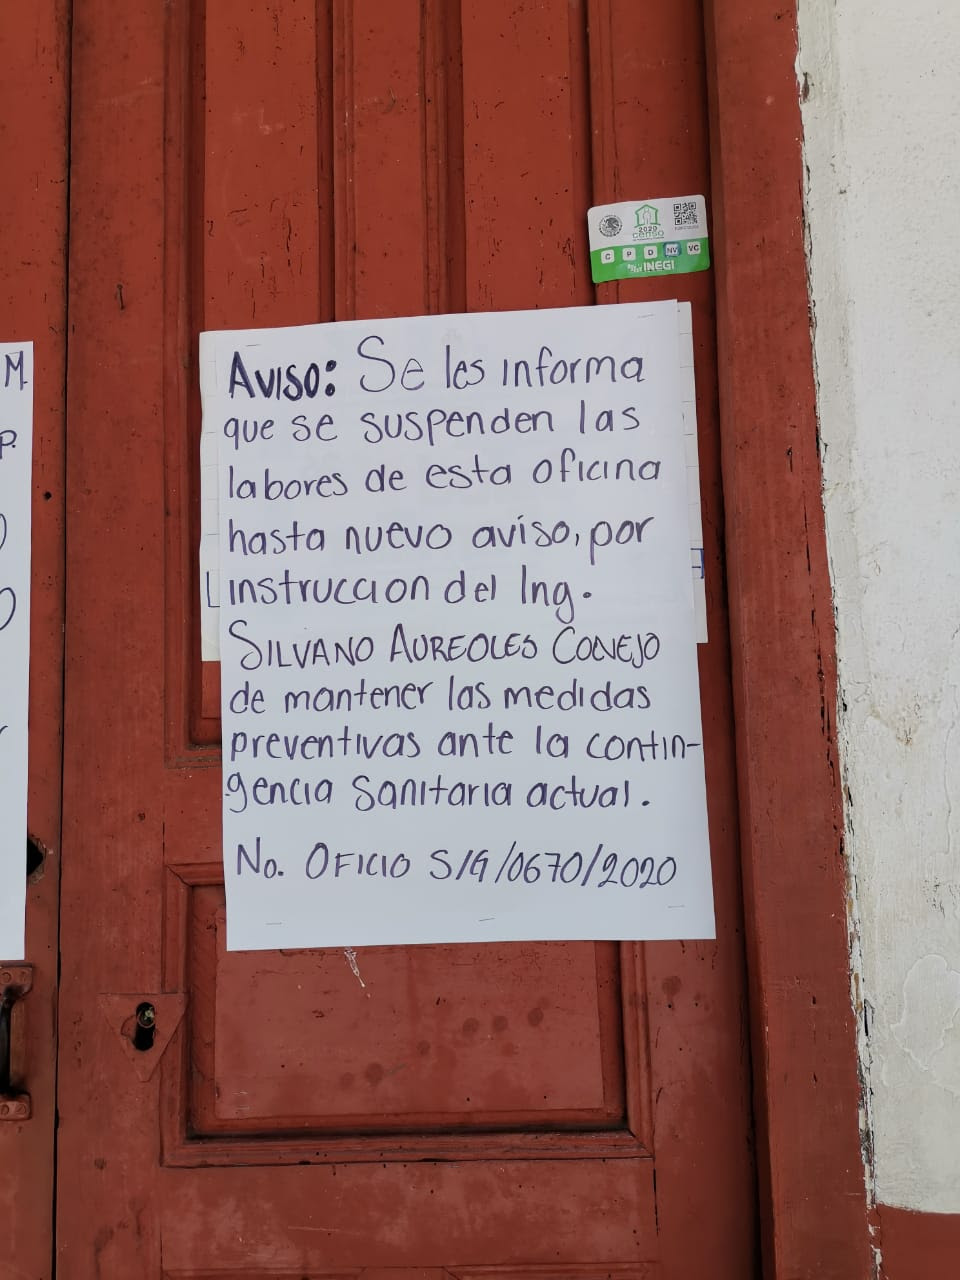 M.
P.
AVISO: Se les informa
que se suspenden las
labores de esta oficina
hasta nuevo aviso, por
instruccion del Ing.
SILVANO AUREOLES CONEJO
de mantener las medidas
preventivas ante la contin-
gencia Sanitaria actual.
No. OFICIO S/G/0670/2020
2020
censo
C P D NV VC
INEGI